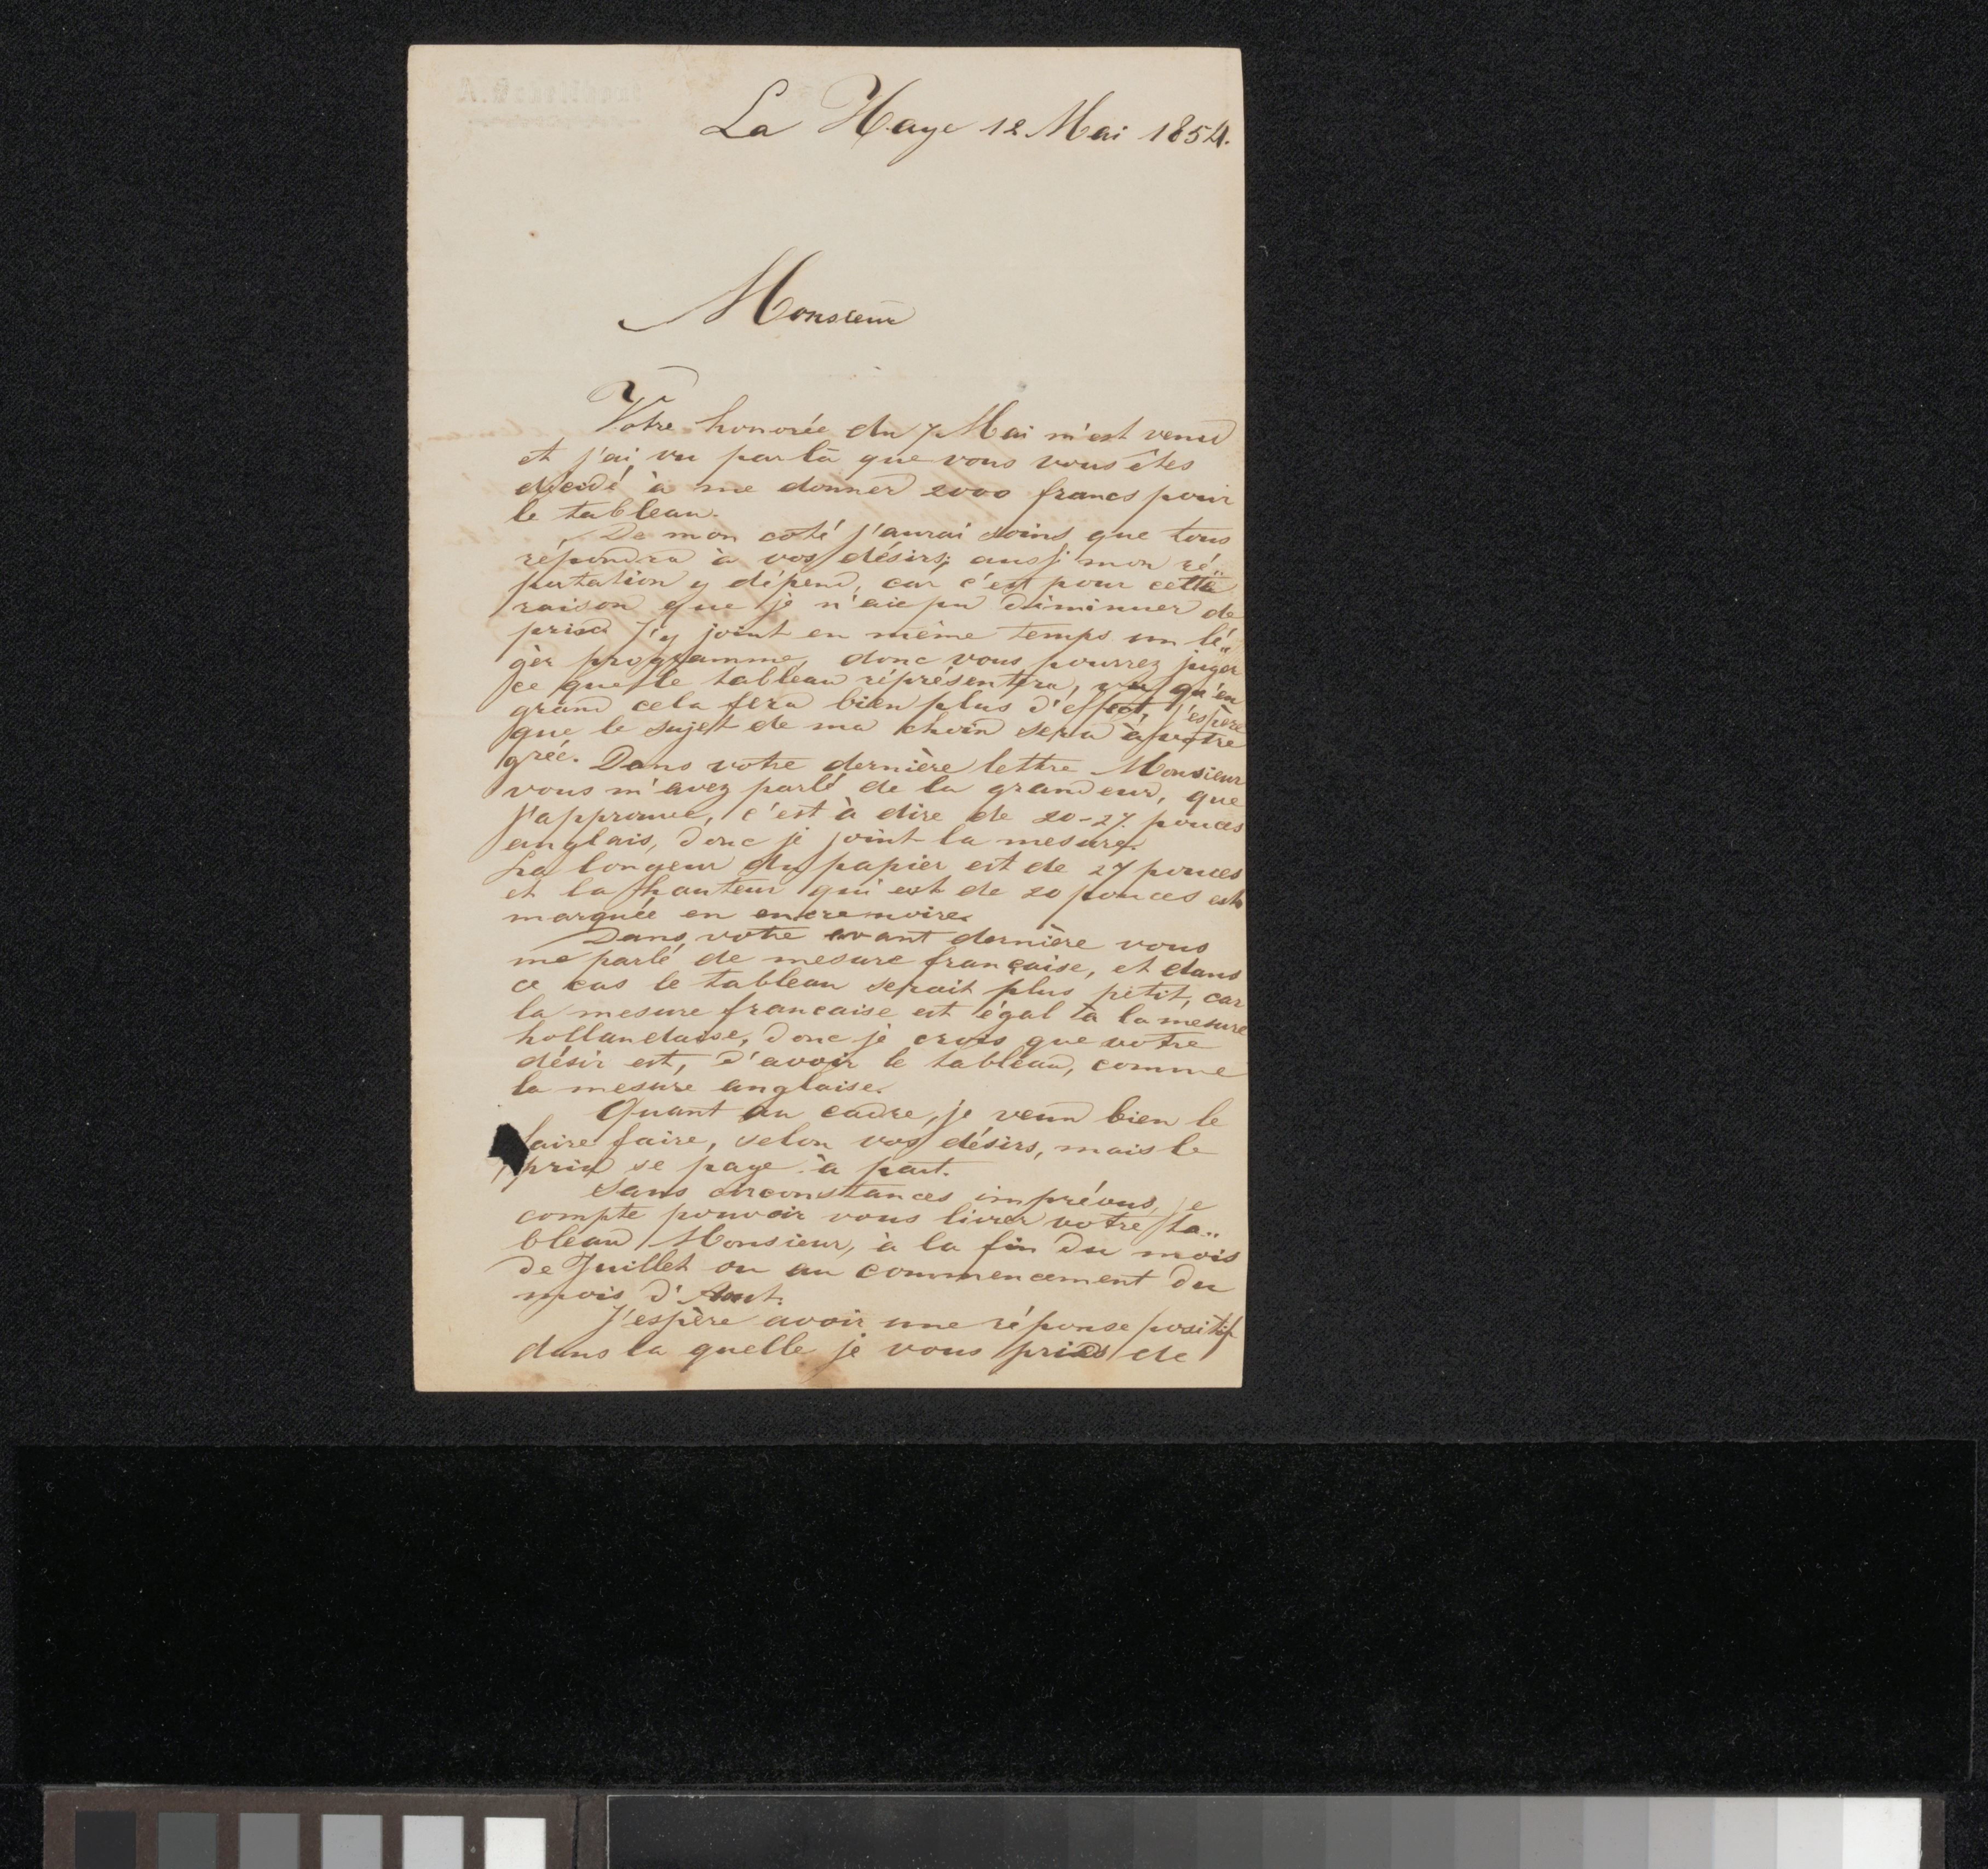 La Haye 12 Mai 1854.
Monsieur
Votre honorée du 7 Mai m'est venu
et j'ai vu par là que vous vous êtes
décidé à me donner 2000 francs pour
le tableau.
De mon coté j'aurai soins que tous
répondra à vos désirs; aussi mon ré„
putation y dépend, car c'est pour cette
raison que je n'aie pu diminuer de
prix. J'y joint en même temps un lé„
gèr programme, donc vous pourrez juger
ce que le tableau réprésentera, vu qu'en
grand cela fera bien plus d'effect, j'espère
que le sujet de ma choix sera à votre
grée. Dans votre dernière lettre Monsieur
vous m'avez parlé de la grandeur, que
j'approuve, c'est à dire de 20-27. pouces
anglais, donc je joint la mesure.
La longeur du papier est de 27 pouces
et la hauteur qui est de 20 pouces est
marquée en encre noire.
Dans votre avant dernière vous
me parlé de mesure française, et dans
ce cas le tableau serait plus pétit, car
la mesure francaise est égal à la mesure
hollandaise, donc je crois que votre
désir est, d'avoir le tableau, comme
la mesure anglaise.
Quant au cadre, je veux bien le
faire faire, selon vos désirs, mais le
prix se paye à part.
Sans circonstances imprévus, je
compte pouvoir vous livrer votre ta„
bleau Monsieur, à la fin du mois
de Juillet ou au commencement du
mois d'Aout.
J'espère avoir une réponse positif
dans la quelle je vous pries de